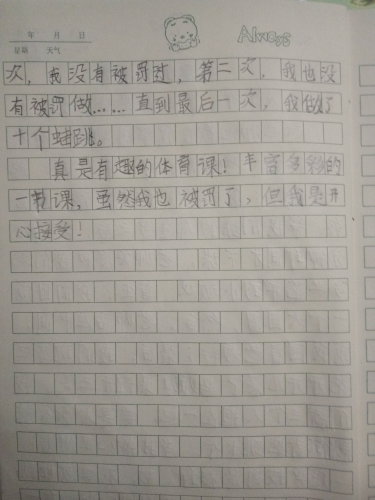 年 月 日
星期 天气
Always
次，我没有被罚过，第二次，我也没
有被罚做……直到最后一次，我做了
十个蛙跳。
真是有趣的体育课！丰富多彩的
一节课，虽然我也被罚了，但我是开
心接受！